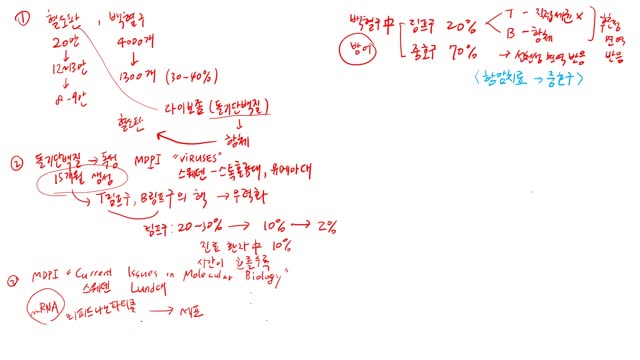 ① 혈소판, 백혈구
20만 4000개
↓ ↓
12~13만 1300개 (30-40%)
↓
8-9만
다이보좀 (돌기단백질)
↓
혈소판 ← 항체
② 돌기단백질 → 독성 MDPI "viruses"
15개월 생성 스웨덴 - 스톡홀름대, 우메아대
→ T림프구, B림프구의 핵 → 무력화
림프구: 20-30% → 10% → 2%
진료 환자中 10%
시간이 흐를수록
③ MDPI "Current Issues in Molecular Biology"
스웨덴 Lund대
mRNA 리피드나노파티클 → 세포
백혈구中 림프구 20% T - 직접세균 x
방어 B - 항체
중호구 70% → 선천성 면역 반응
후천 면역 반응
<항암치료 → 중호구>